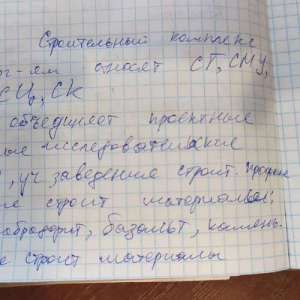 Строительный комплекс
относят СТ, СМУ,
СЦ, СК
объединяет проектные
исследовательские
, уч заведения строит.
строит материалы:
, базальт, камень.
строит материалы